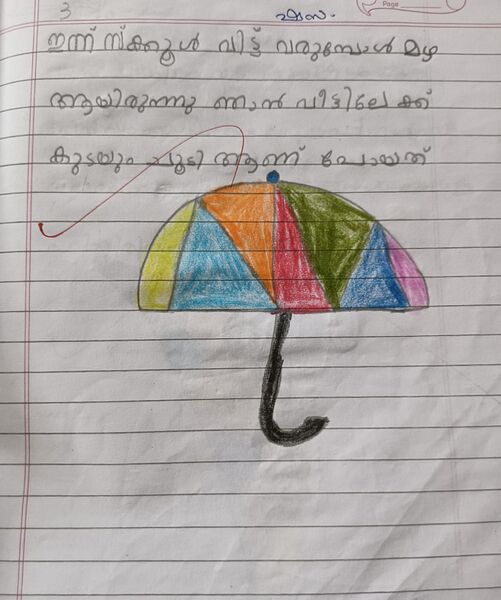 3
Page
ഇന്ന് സ്ക്കൂൾ വിട്ട് വരുമ്പോൾ മഴ
ആയിരുന്നു ഞാൻ വീട്ടിലേക്ക്
കുടയും ചൂടി ആണ് പോയത്